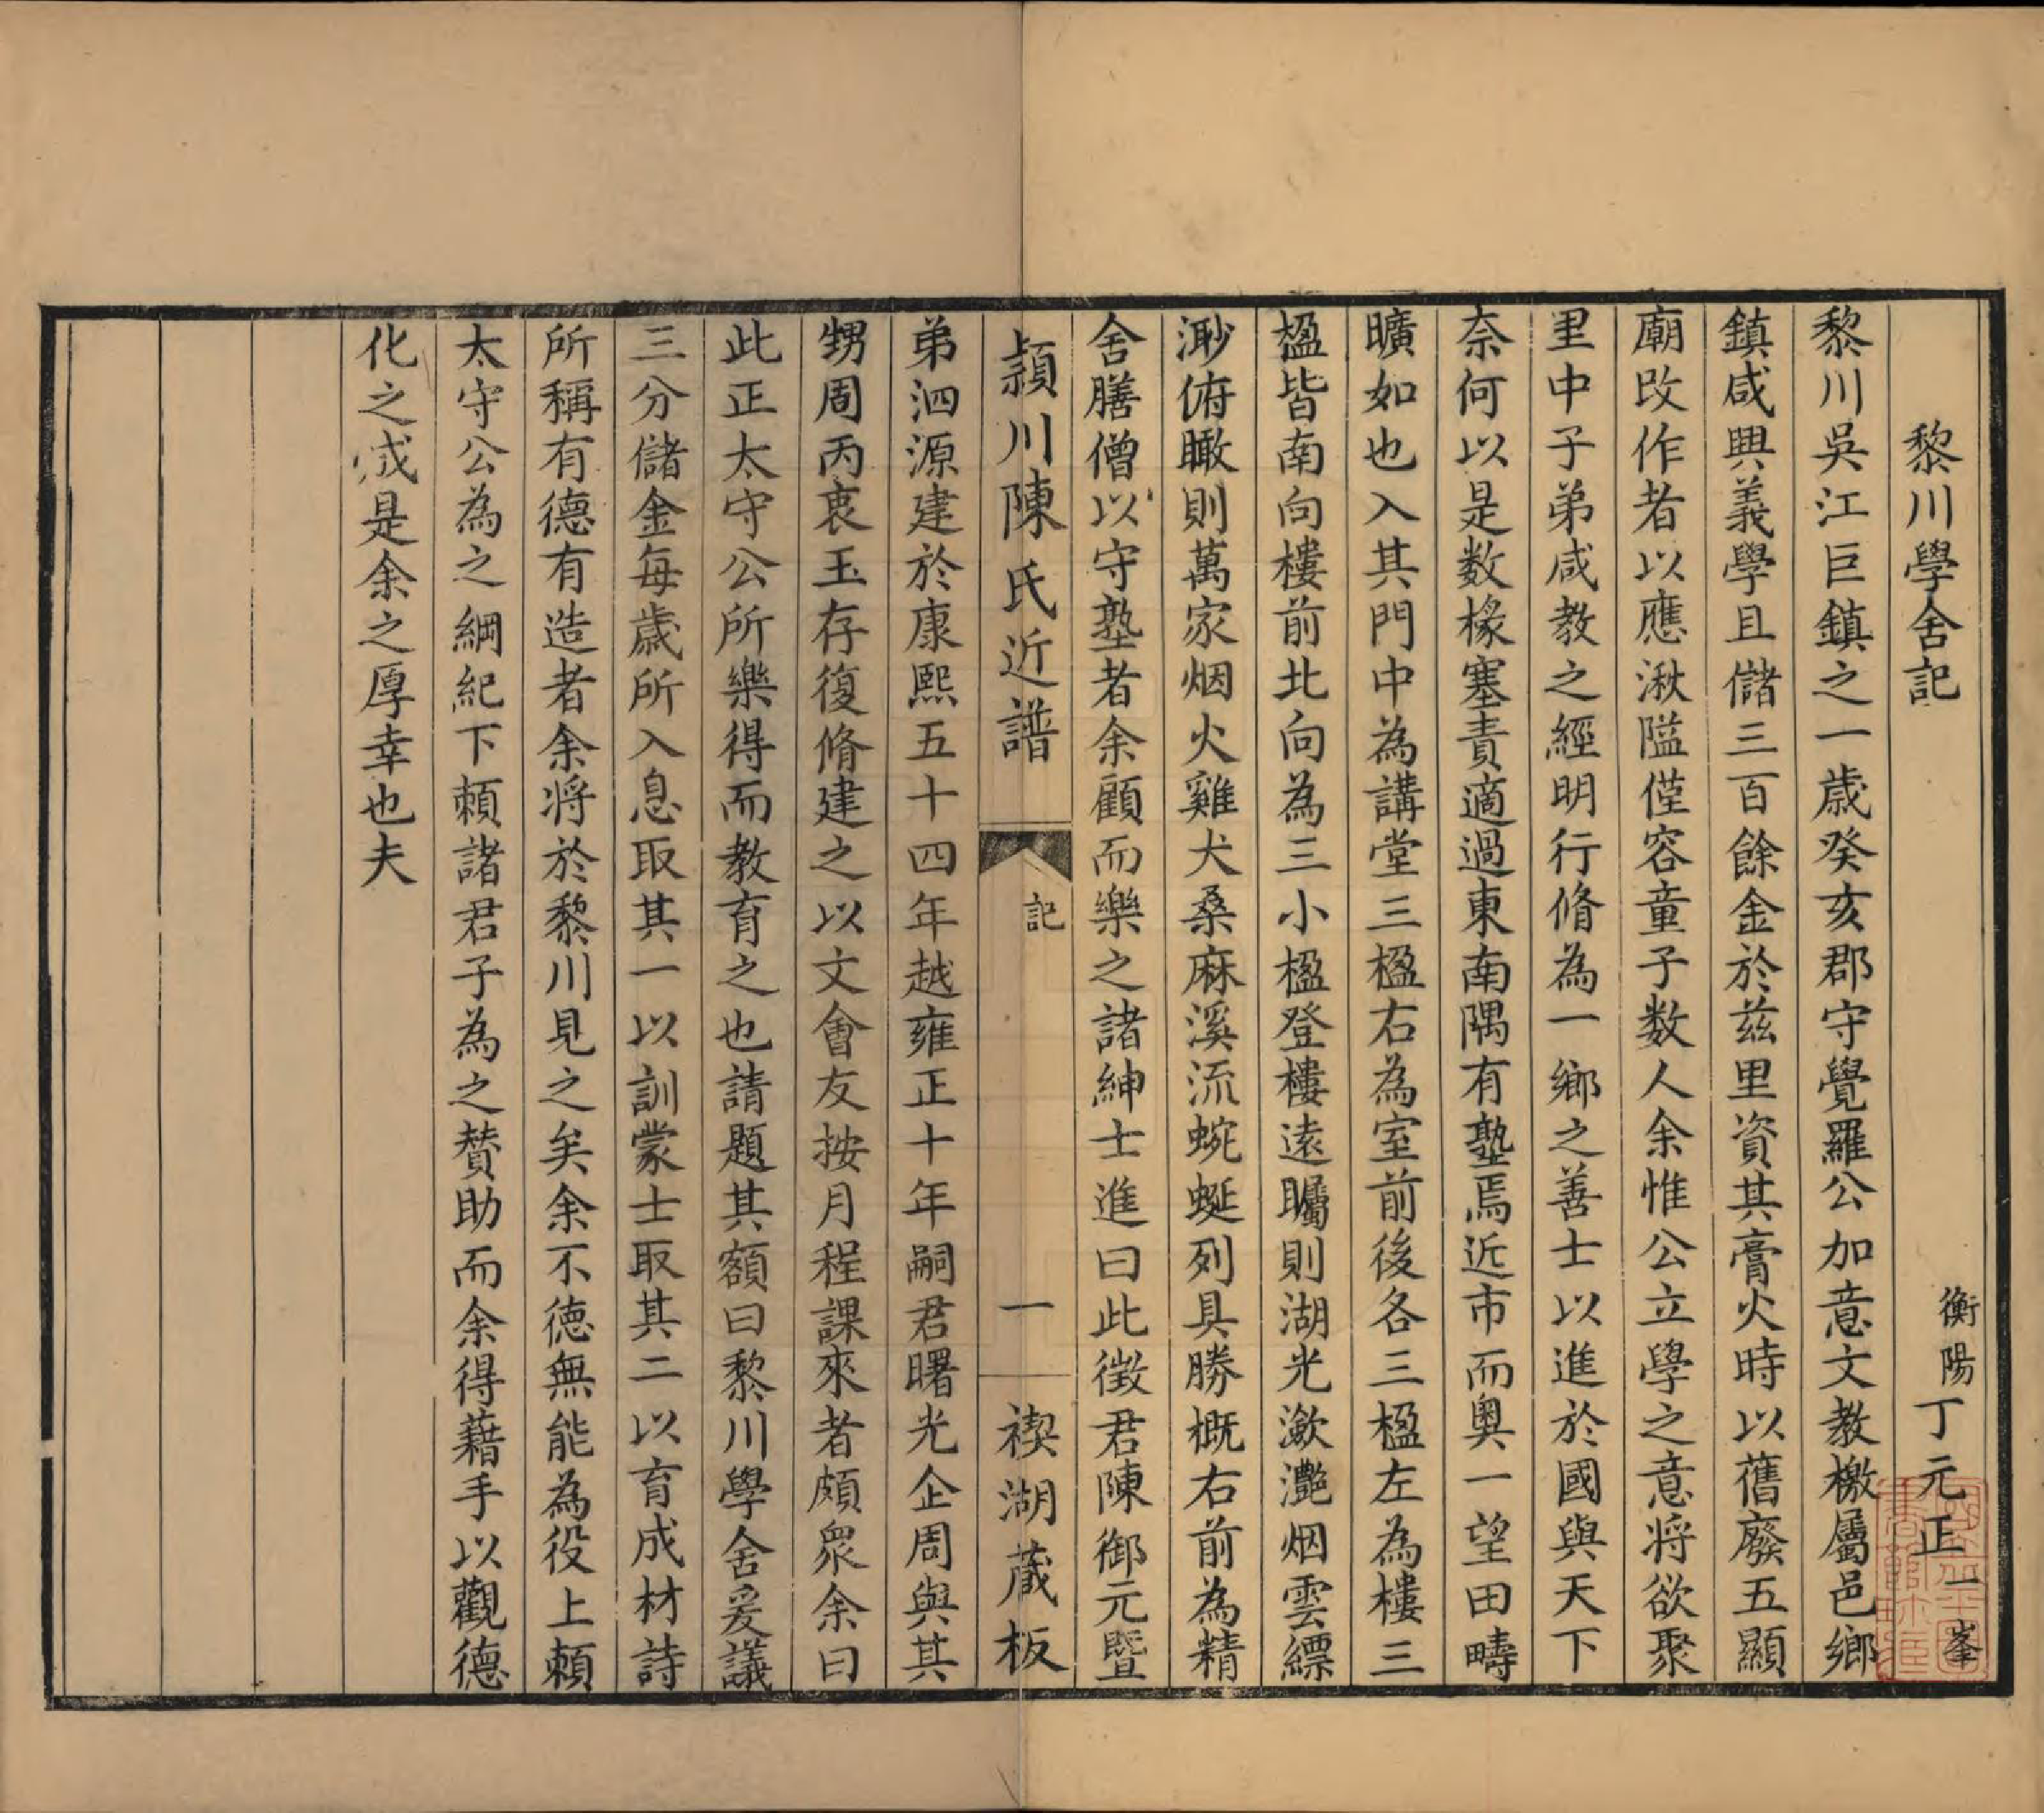 黎川學舍記
衡陽丁元正一峯
黎川吳江巨鎮之一歲癸亥郡守覺羅公加意文教檄屬邑鄉
鎮咸興義學且儲三百餘金於兹里資其膏火時以舊廢五顯
廟改作者以應湫隘僅容童子数人余惟公立學之意将欲聚
里中子弟咸教之經明行脩為一鄉之善士以進於國與天下
奈何以是数椽塞責適過東南隅有塾焉近市而奧一望田疇
曠如也入其門中為講堂三楹右為室前後各三楹左為樓三
楹皆南向樓前北向為三小楹登樓遠矚則湖光瀲灧烟雲縹
渺俯瞰則萬家烟火雞犬桑麻溪流蜿蜒列具勝概右前為精
舍膳僧以守塾者余顧而樂之諸紳士進曰此徵君陳御元暨
穎川陳氏近譜
記
一
禊湖蔵板
弟泗源建於康熙五十四年越雍正十年嗣君曙光企周與其
甥周丙衷玉存復脩建之以文會友按月程課來者頗衆余曰
此正太守公所樂得而教育之也請題其額曰黎川學舍爰議
三分儲金每歲所入息取其一以訓蒙士取其二以育成材詩
所稱有德有造者余将於黎川見之矣余不德無能為役上頼
太守公為之綱紀下頼諸君子為之賛助而余得藉手以觀德
化之成是余之厚幸也夫